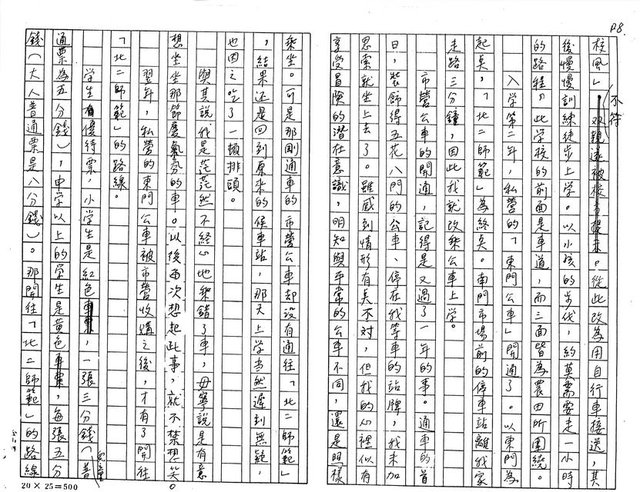 P8
校風」不待 從此改為用自行車接送，其
後慢慢訓練徒步上學。以小孩的步伐，約莫需要走一小時
的路程。此學校的前面是車道，而三面皆為農田所圍繞。
入學第二年，私營的「東門公車」開通了。以東門為
起點，「北二師範」為終點。南門市場前的停車站離我家
走路三分鐘，因此我就改乘公車上學。
市營公車的開通，記得是又過了一年的事。通車的首
日，裝飾得五花八門的公車，停在我等車的站牌，我未加
思索就坐上去了。雖感到情形有點不對，但我的心裡似有
享受冒險的潛在意識，明知與平常的公車不同，還是照樣
乘坐。可是那剛通車的市營公車卻沒有通往「北二師範」
，結果還是回到原來的候車站，那天上學當然遲到無疑，
也因之吃了一頓排頭。
與其說我是茫茫然不經心地乘錯了車，毋寧說是有意
想坐坐那節慶氣分的車。以後每次想起此事，就不禁想笑。
翌年，私營的東門公車被市營收購之後，才有了開往
「北二師範」的路線。
學生有優待票，小學生是紅色車票，一張三分錢（普
通票為五分錢），中學以上的學生是黃色車票，每張五分
錢（大人普通票是八分錢）。那開往「北二師範」的路線
20 × 25 = 500